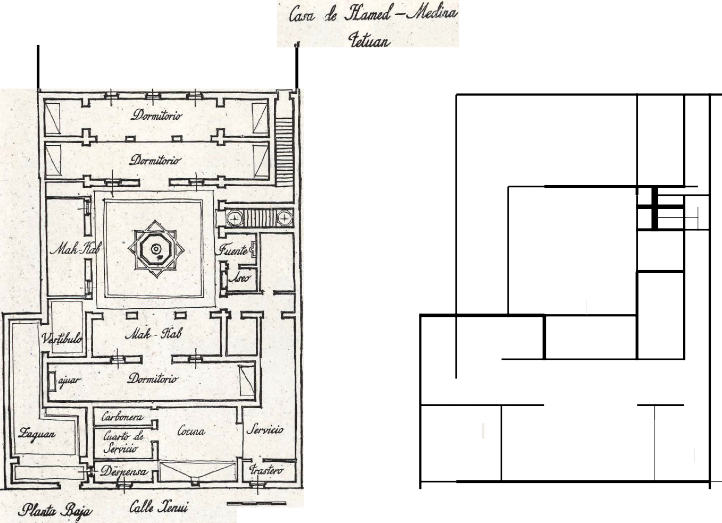 Casa de Hamed - Medina
Tetuan
Dormitorio
Dormitorio
Mak-Kab
Fuente
Aseo
Vestibulo
Mak-Kab
ajuar
Dormitorio
Carbonera
Zaguan
Cuarto de
Servicio
Cocina
Servicio
Despensa
trastero
Planta Baja
Calle Xenui